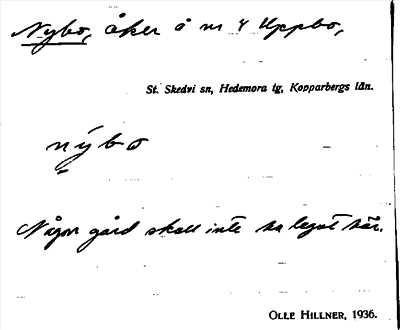 Nybo, åker å nr 4 Uppbo,
St. Skedvi sn, Hedemora tg, Kopparbergs län.
nýbo
Någon gård skall inte ha legat här.
OLLE HILLNER, 1936.